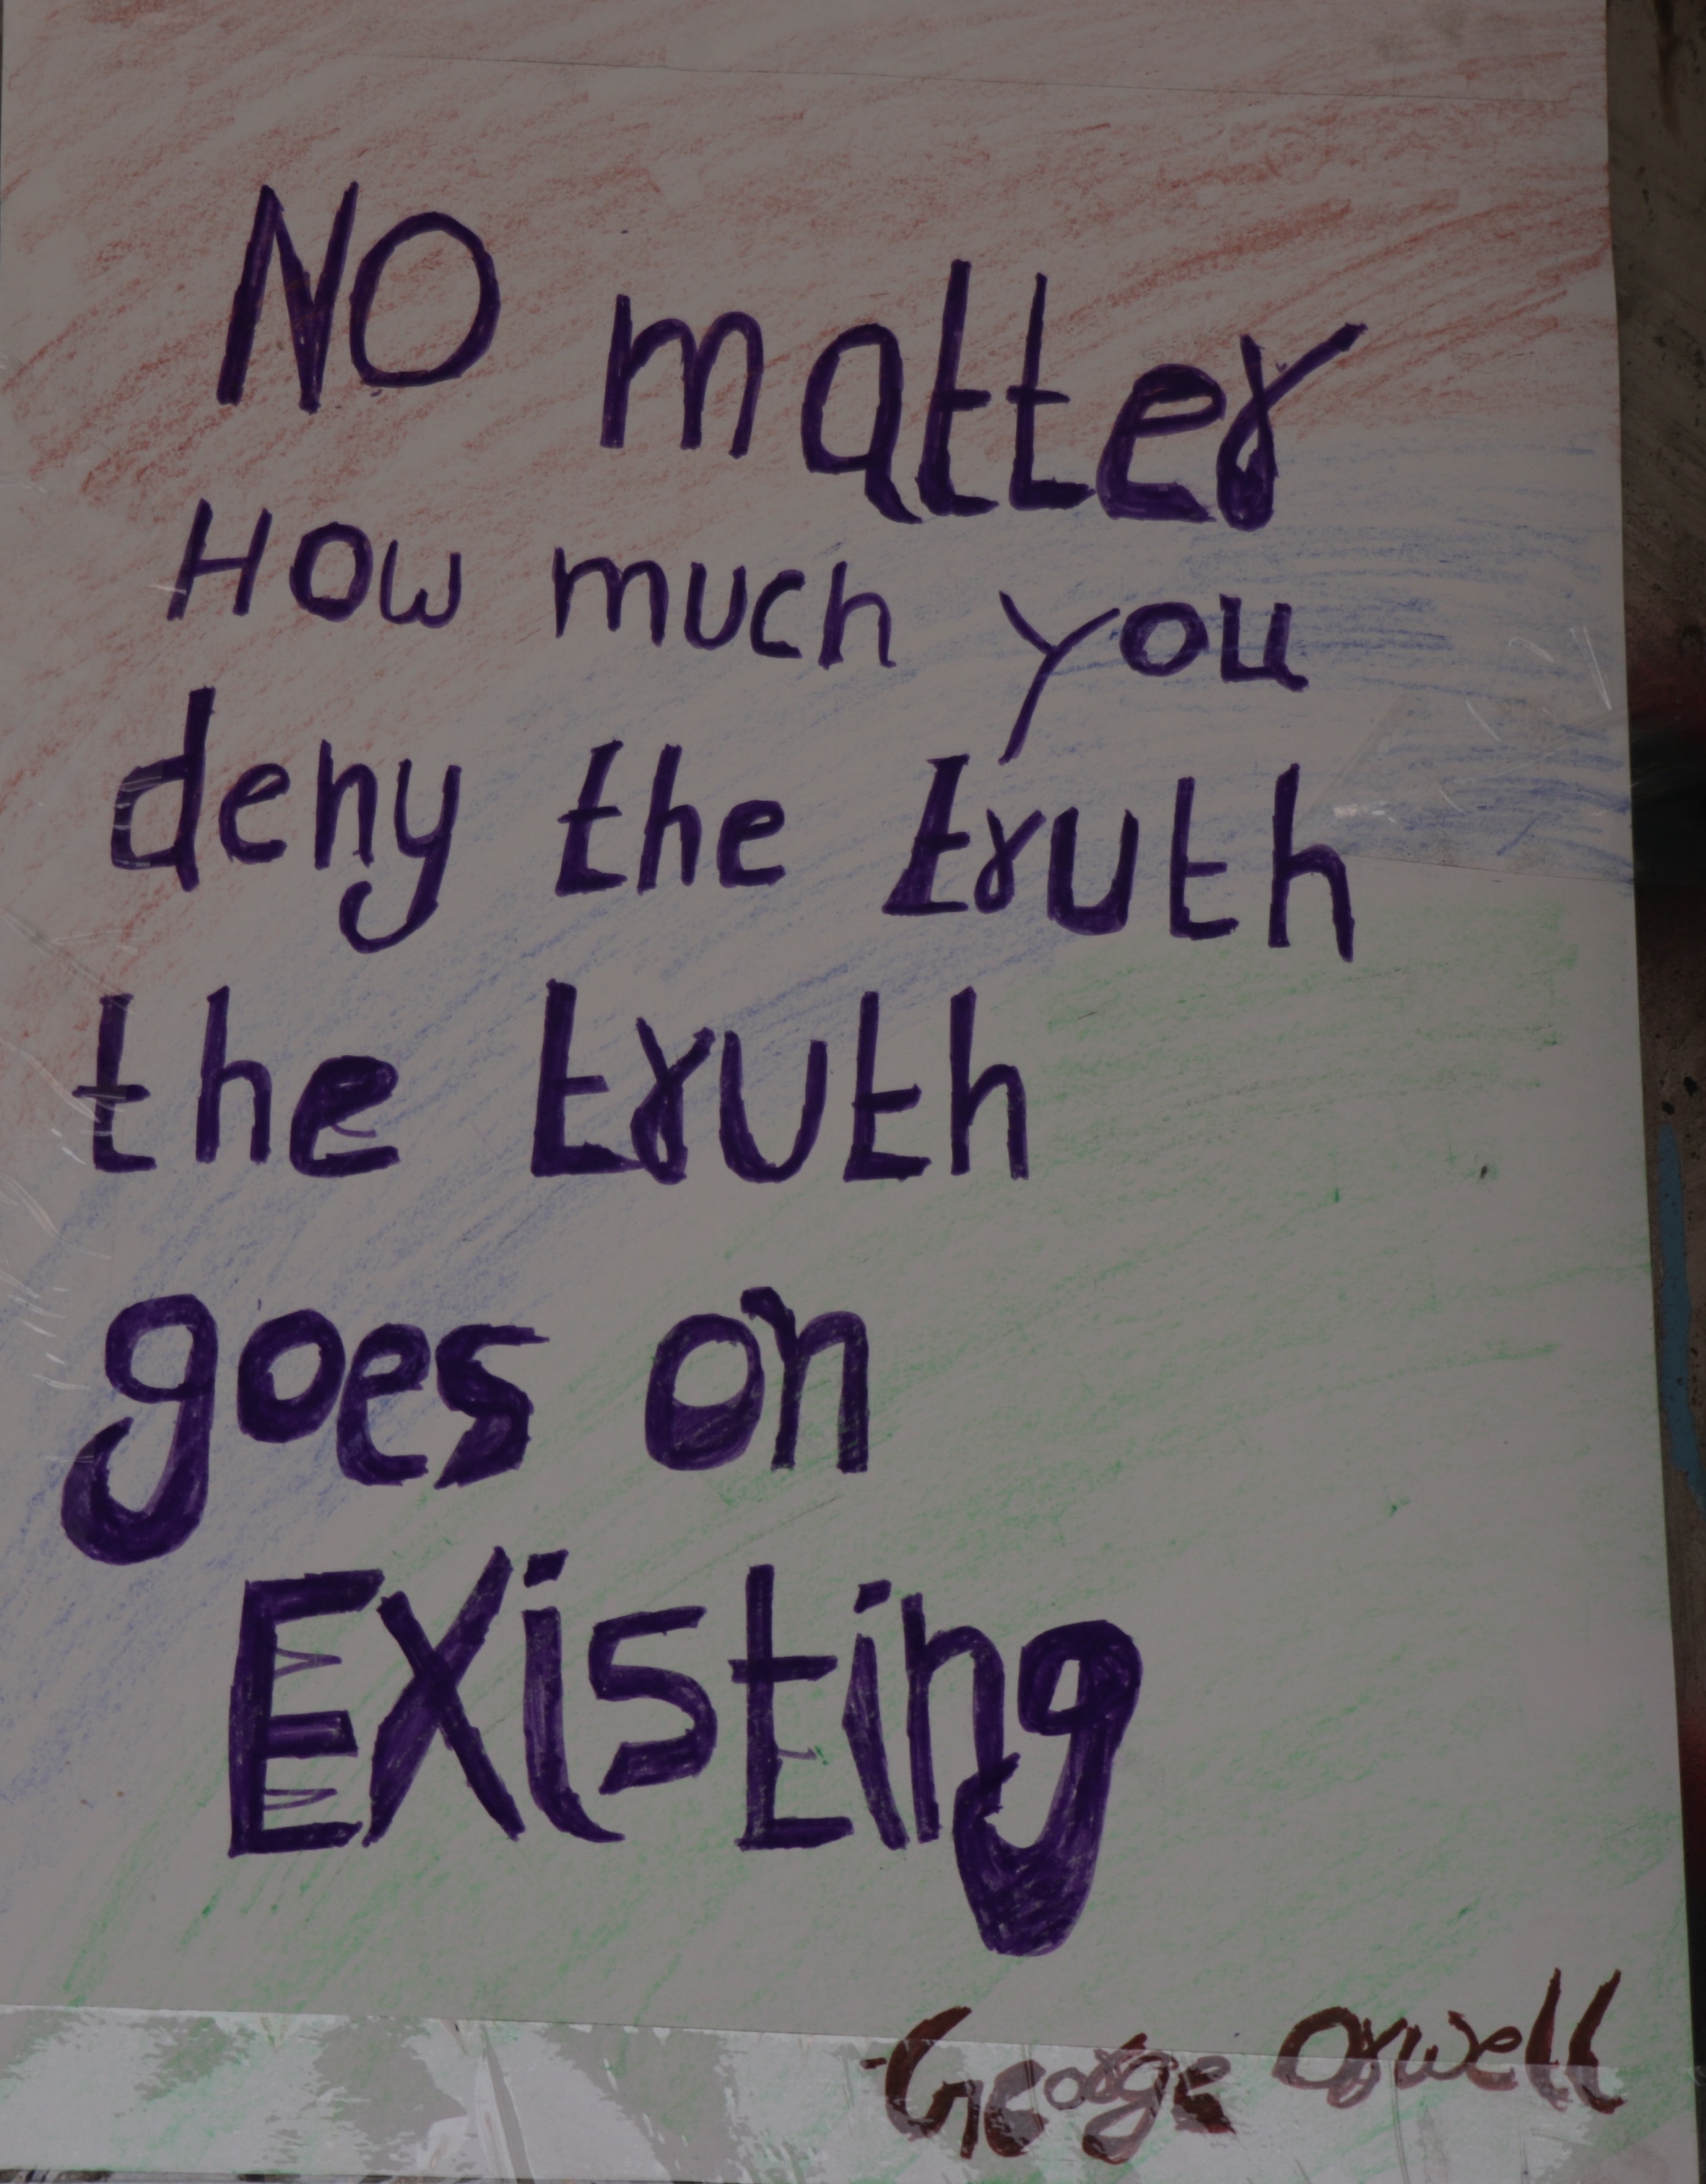 NO matter
How much you
deny the truth
the truth
goes on
EXisting
-George Orwell